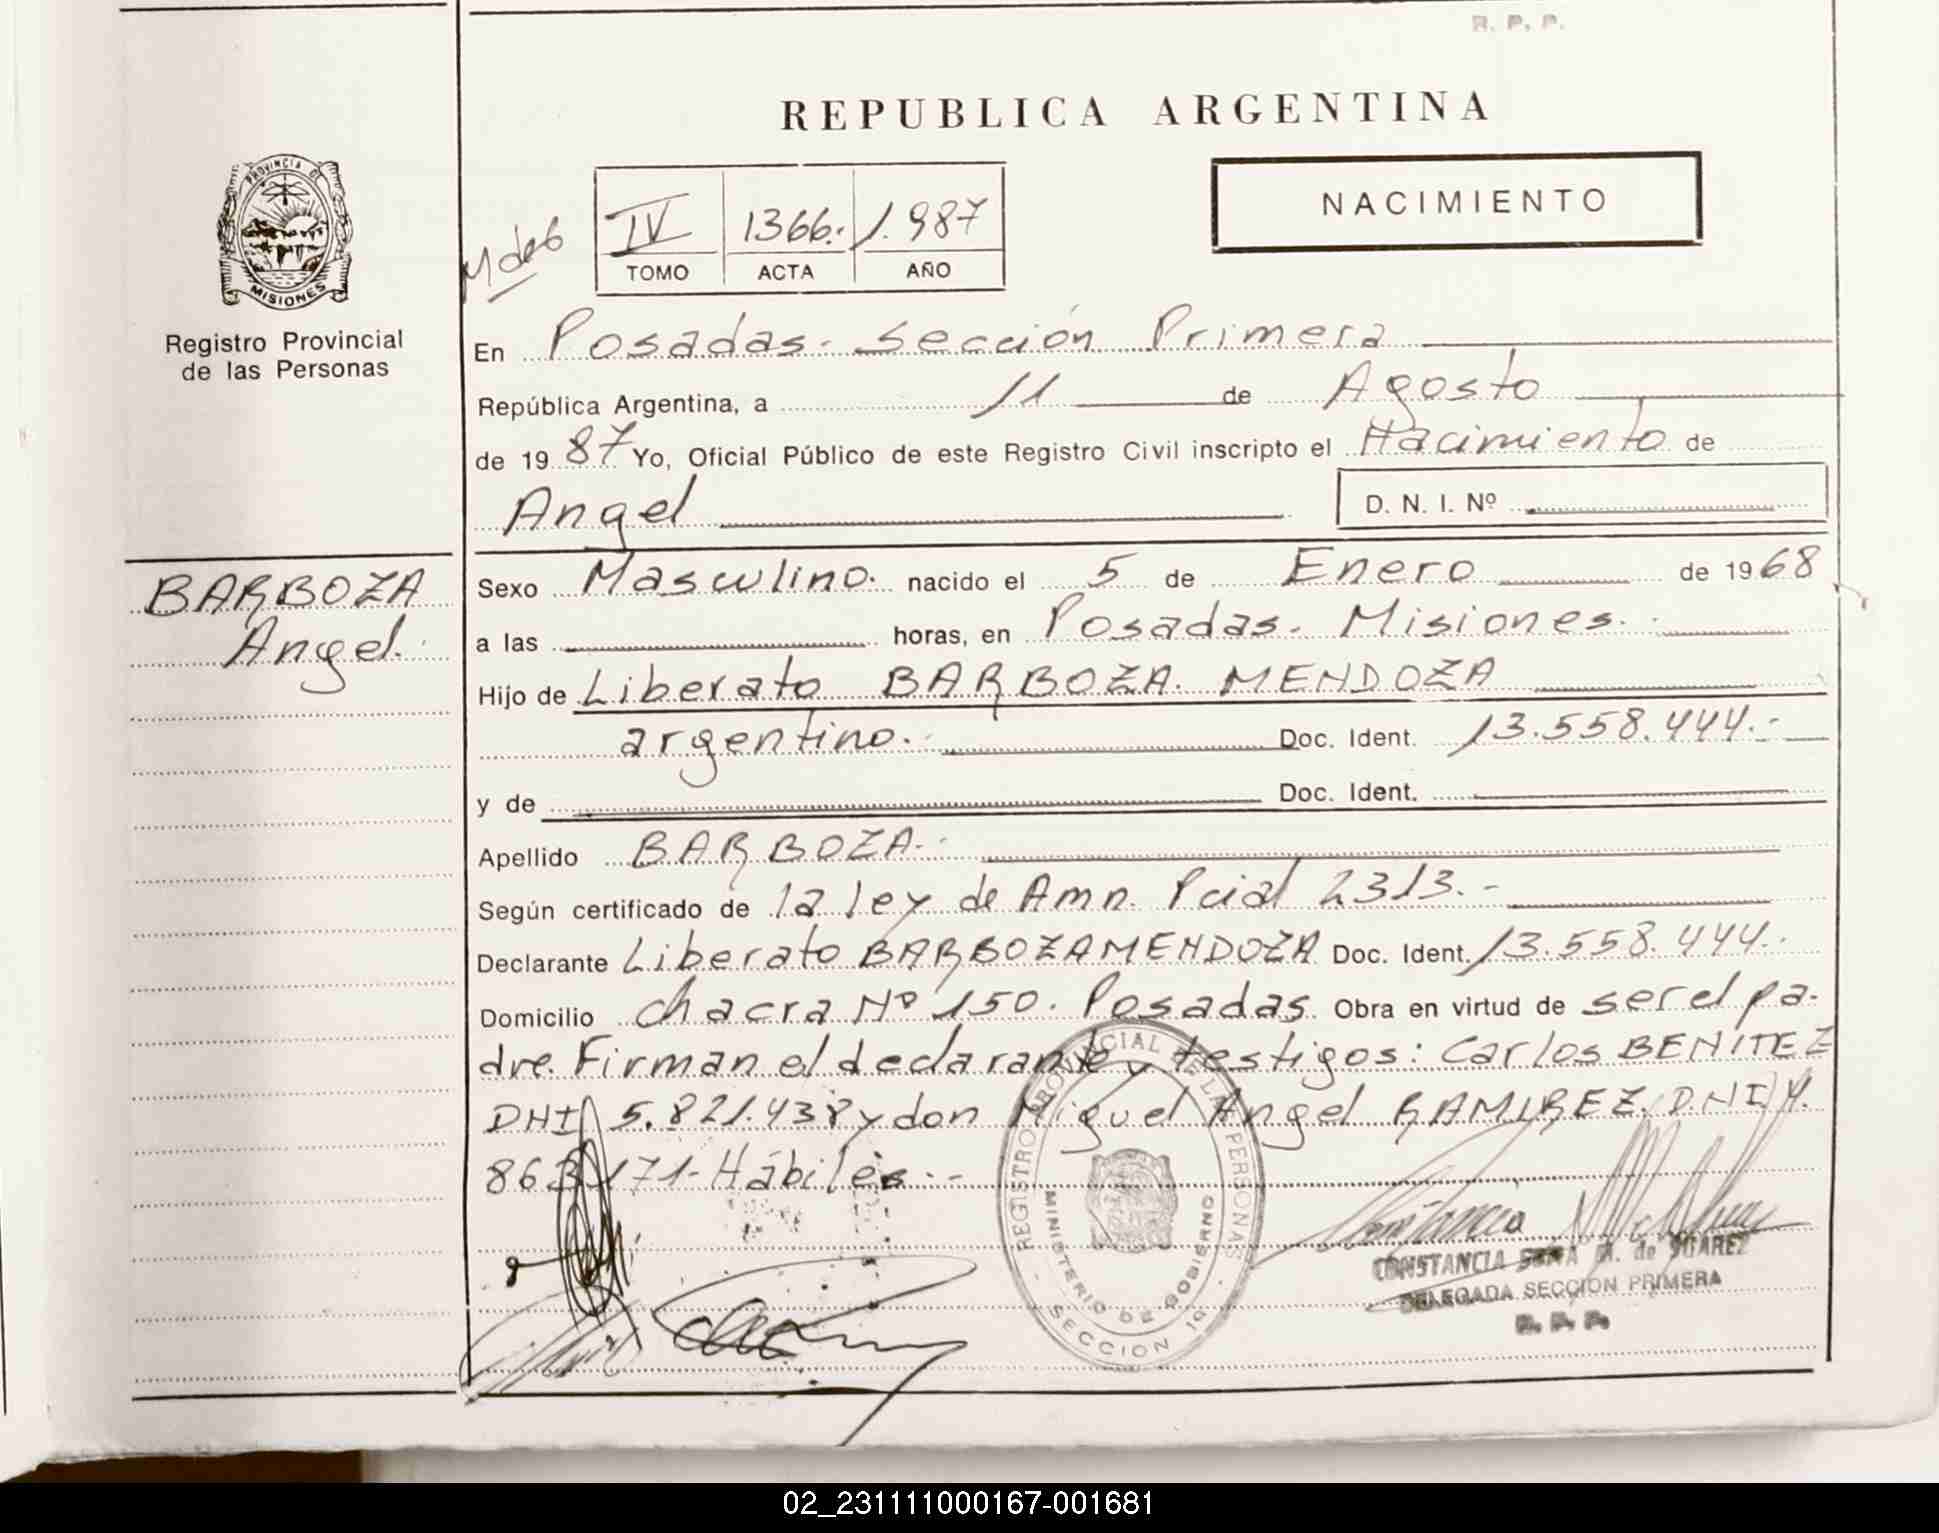 R. P. P.
REPUBLICA ARGENTINA
PROVINCIA DE
MISIONES
Registro Provincial
de las Personas
NACIMIENTO
IV 1366.- 1.987
TOMO ACTA AÑO
En Posadas. Sección Primera
República Argentina, a 11 de Agosto
de 1987 Yo, Oficial Público de este Registro Civil inscripto el Nacimiento de
Angel
D. N. I. Nº
BARBOZA
Angel.
Sexo Masculino. nacido el 5 de Enero de 1968
a las horas, en Posadas. Misiones.-
Hijo de Liberato BARBOZA. MENDOZA
argentino.- Doc. Ident. 13.558.444.-
y de Doc. Ident.
Apellido BARBOZA.-
Según certificado de la ley de Amn. Pcial 2313.-
Declarante Liberato BARBOZA MENDOZA Doc. Ident. 13.558.444.-
Domicilio chacra Nº 150. Posadas. Obra en virtud de ser el pa-
dre. Firman el declarante y testigos: Carlos BENITEZ
DNI 5.821.438 y don Miguel Angel RAMIREZ. D.N.I 4.
863.171- Hábiles.-
REGISTRO PROVINCIAL DE LAS PERSONAS
MINISTERIO DE GOBIERNO
SECCION 1ª
CONSTANCIA M. de SUAREZ
DELEGADA SECCION PRIMERA
R. P. P.
02_231111000167-001681